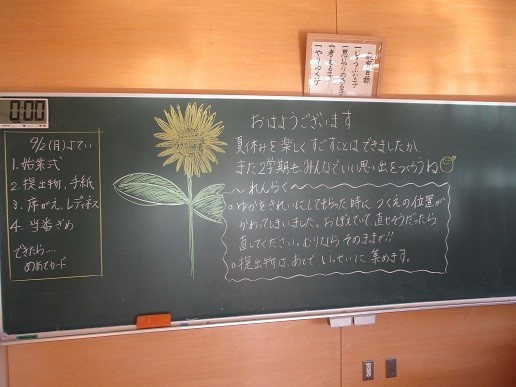 教育目標
一 じょうぶな子
一 思いやりのある子
一 考える子
一 やりぬく子
0:00
9/2(月)よてい
1. 始業式
2. 提出物、手紙
3. 席がえ、レディネス
4. 当番ぎめ
できたら…
めあてカード
おはようございます
夏休みを楽しくすごすことはできましたか
また2学期も、みんなでいい思い出をつくろうね
〜れんらく〜
○ゆかをきれいにしてもらった時に つくえの位置が
かわってしまいました。おぼえていて直せそうだったら
直してください。むりならそのままで!!
○提出物は、あとで いっせいに 集めます。